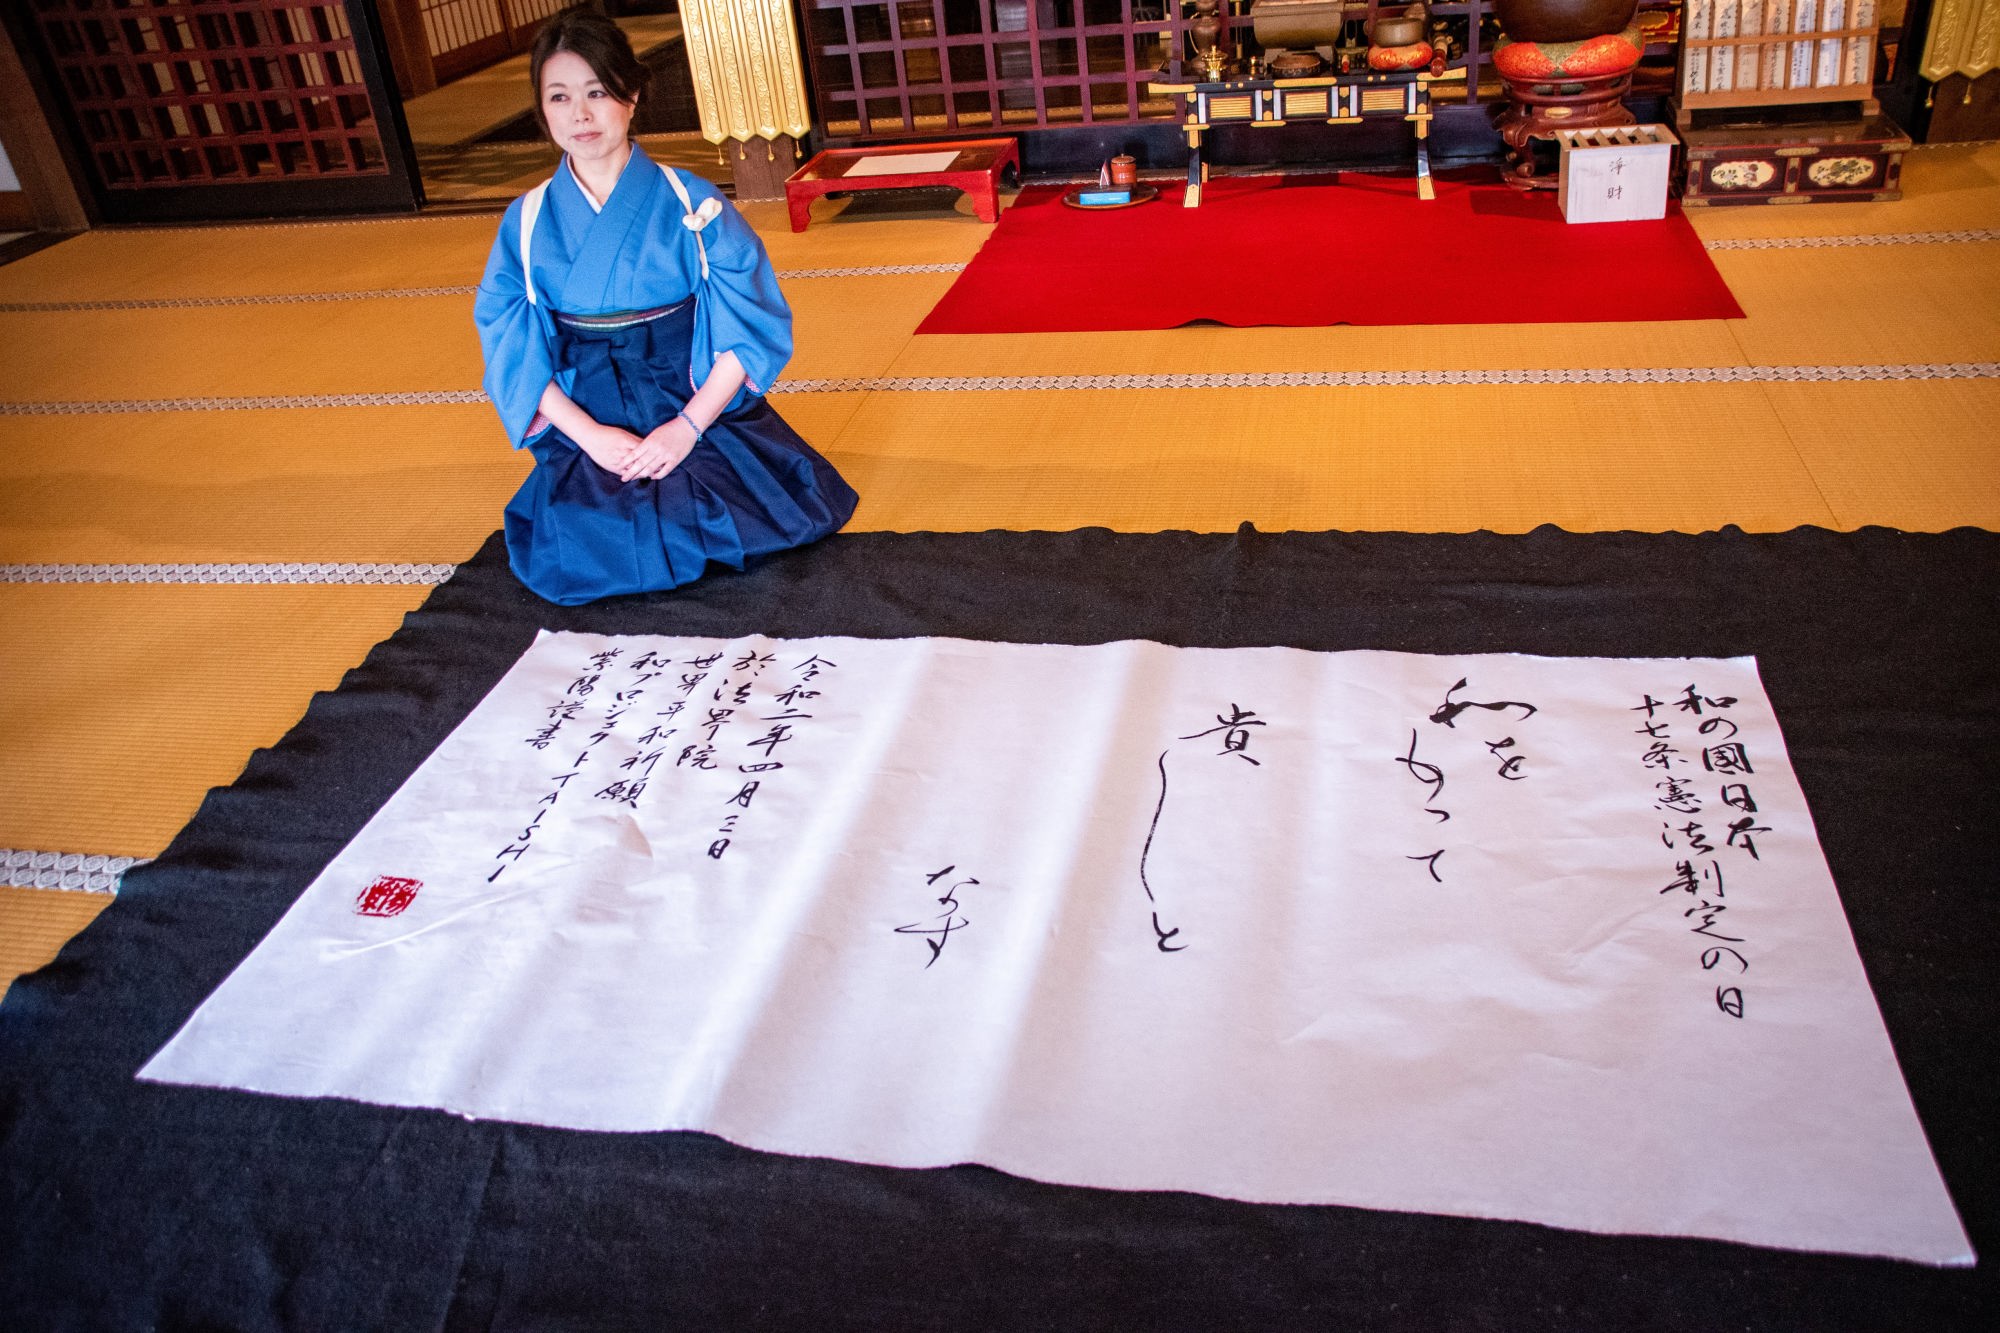 和の國日本
十七条憲法制定の日
和を
もって
貴しと
なす
令和二年四月三日
於法界院
世界平和祈願
和プロジェクトTAISHI
紫陽謹書
淨財